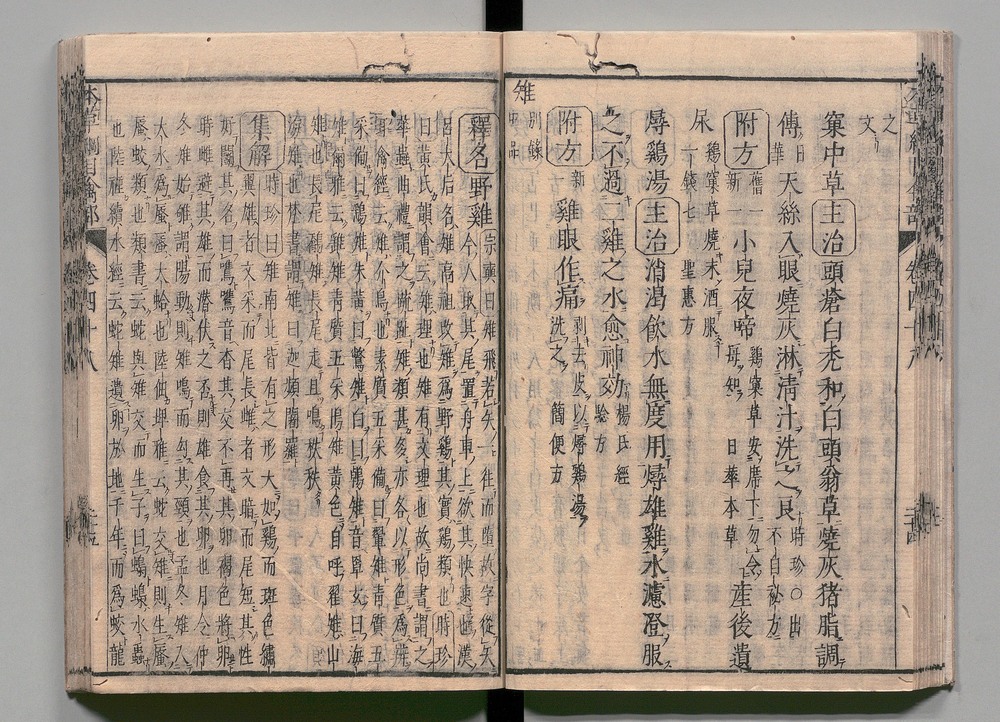 之
文
窠中草主治頭瘡白禿和白頭翁草燒灰猪脂調
傅日華天絲入眼燒灰淋清汁洗之良時珍○出不自秘方
附方舊一新一小兒夜啼鷄窠草安席下勿令母知日華本草産後遺
尿鷄窠草燒末酒服一錢匕聖惠方
燖鷄湯主治消渴飲水無度用燖雄雞水濾澄服
之不過二雞之水愈神効楊氏經驗方
附方新雞眼作痛剥去皮以燖鷄湯洗之簡便方
雉別錄中品
釋名野雞宗奭曰雉飛若矢一往而墮故字從矢
今人取其尾置舟車上欲其快速也漢
呂太后名雉高祖改雉爲野鷄其實鷄類也時珍
曰黃氏韻會云雉理也雉有文理也故尚書謂之
華蟲曲禮謂之疏趾雉類甚多亦各以形色爲辨
禽經云雉介鳥也素質五采備曰翬雉青質五
采備曰鷂雉朱黃曰鷩雉白曰鷴雉玄曰海
雉爾雅云鷂雉青質五采鳪雉黃色自呼翟雉山
雉也長尾鷮雉長尾走且鳴秩秩
海雉也梵書謂雉曰迦頻闍羅
集解時珍曰雉南北皆有之形大如鷄而斑色繡
翼雄者文采而尾長雌者文暗而尾短其性
好鬬其名曰鷕鷕音杳其交不再其卵褐色將卵
時雌避其雄而潛伏之否則雄食其卵也月令仲
冬雉始雊謂陽動則雉鳴而勾其頸也孟冬雉入
大水爲蜃蜃大蛤也陸佃埤雅云蛇交雉則生蜃
蜃蛟類也類書云蛇與雉交而生子曰蟂蟂水蟲
也陸禋續水經云蛇雉遺卵於地千年而爲蛟龍
本草綱目禽部
卷四十八